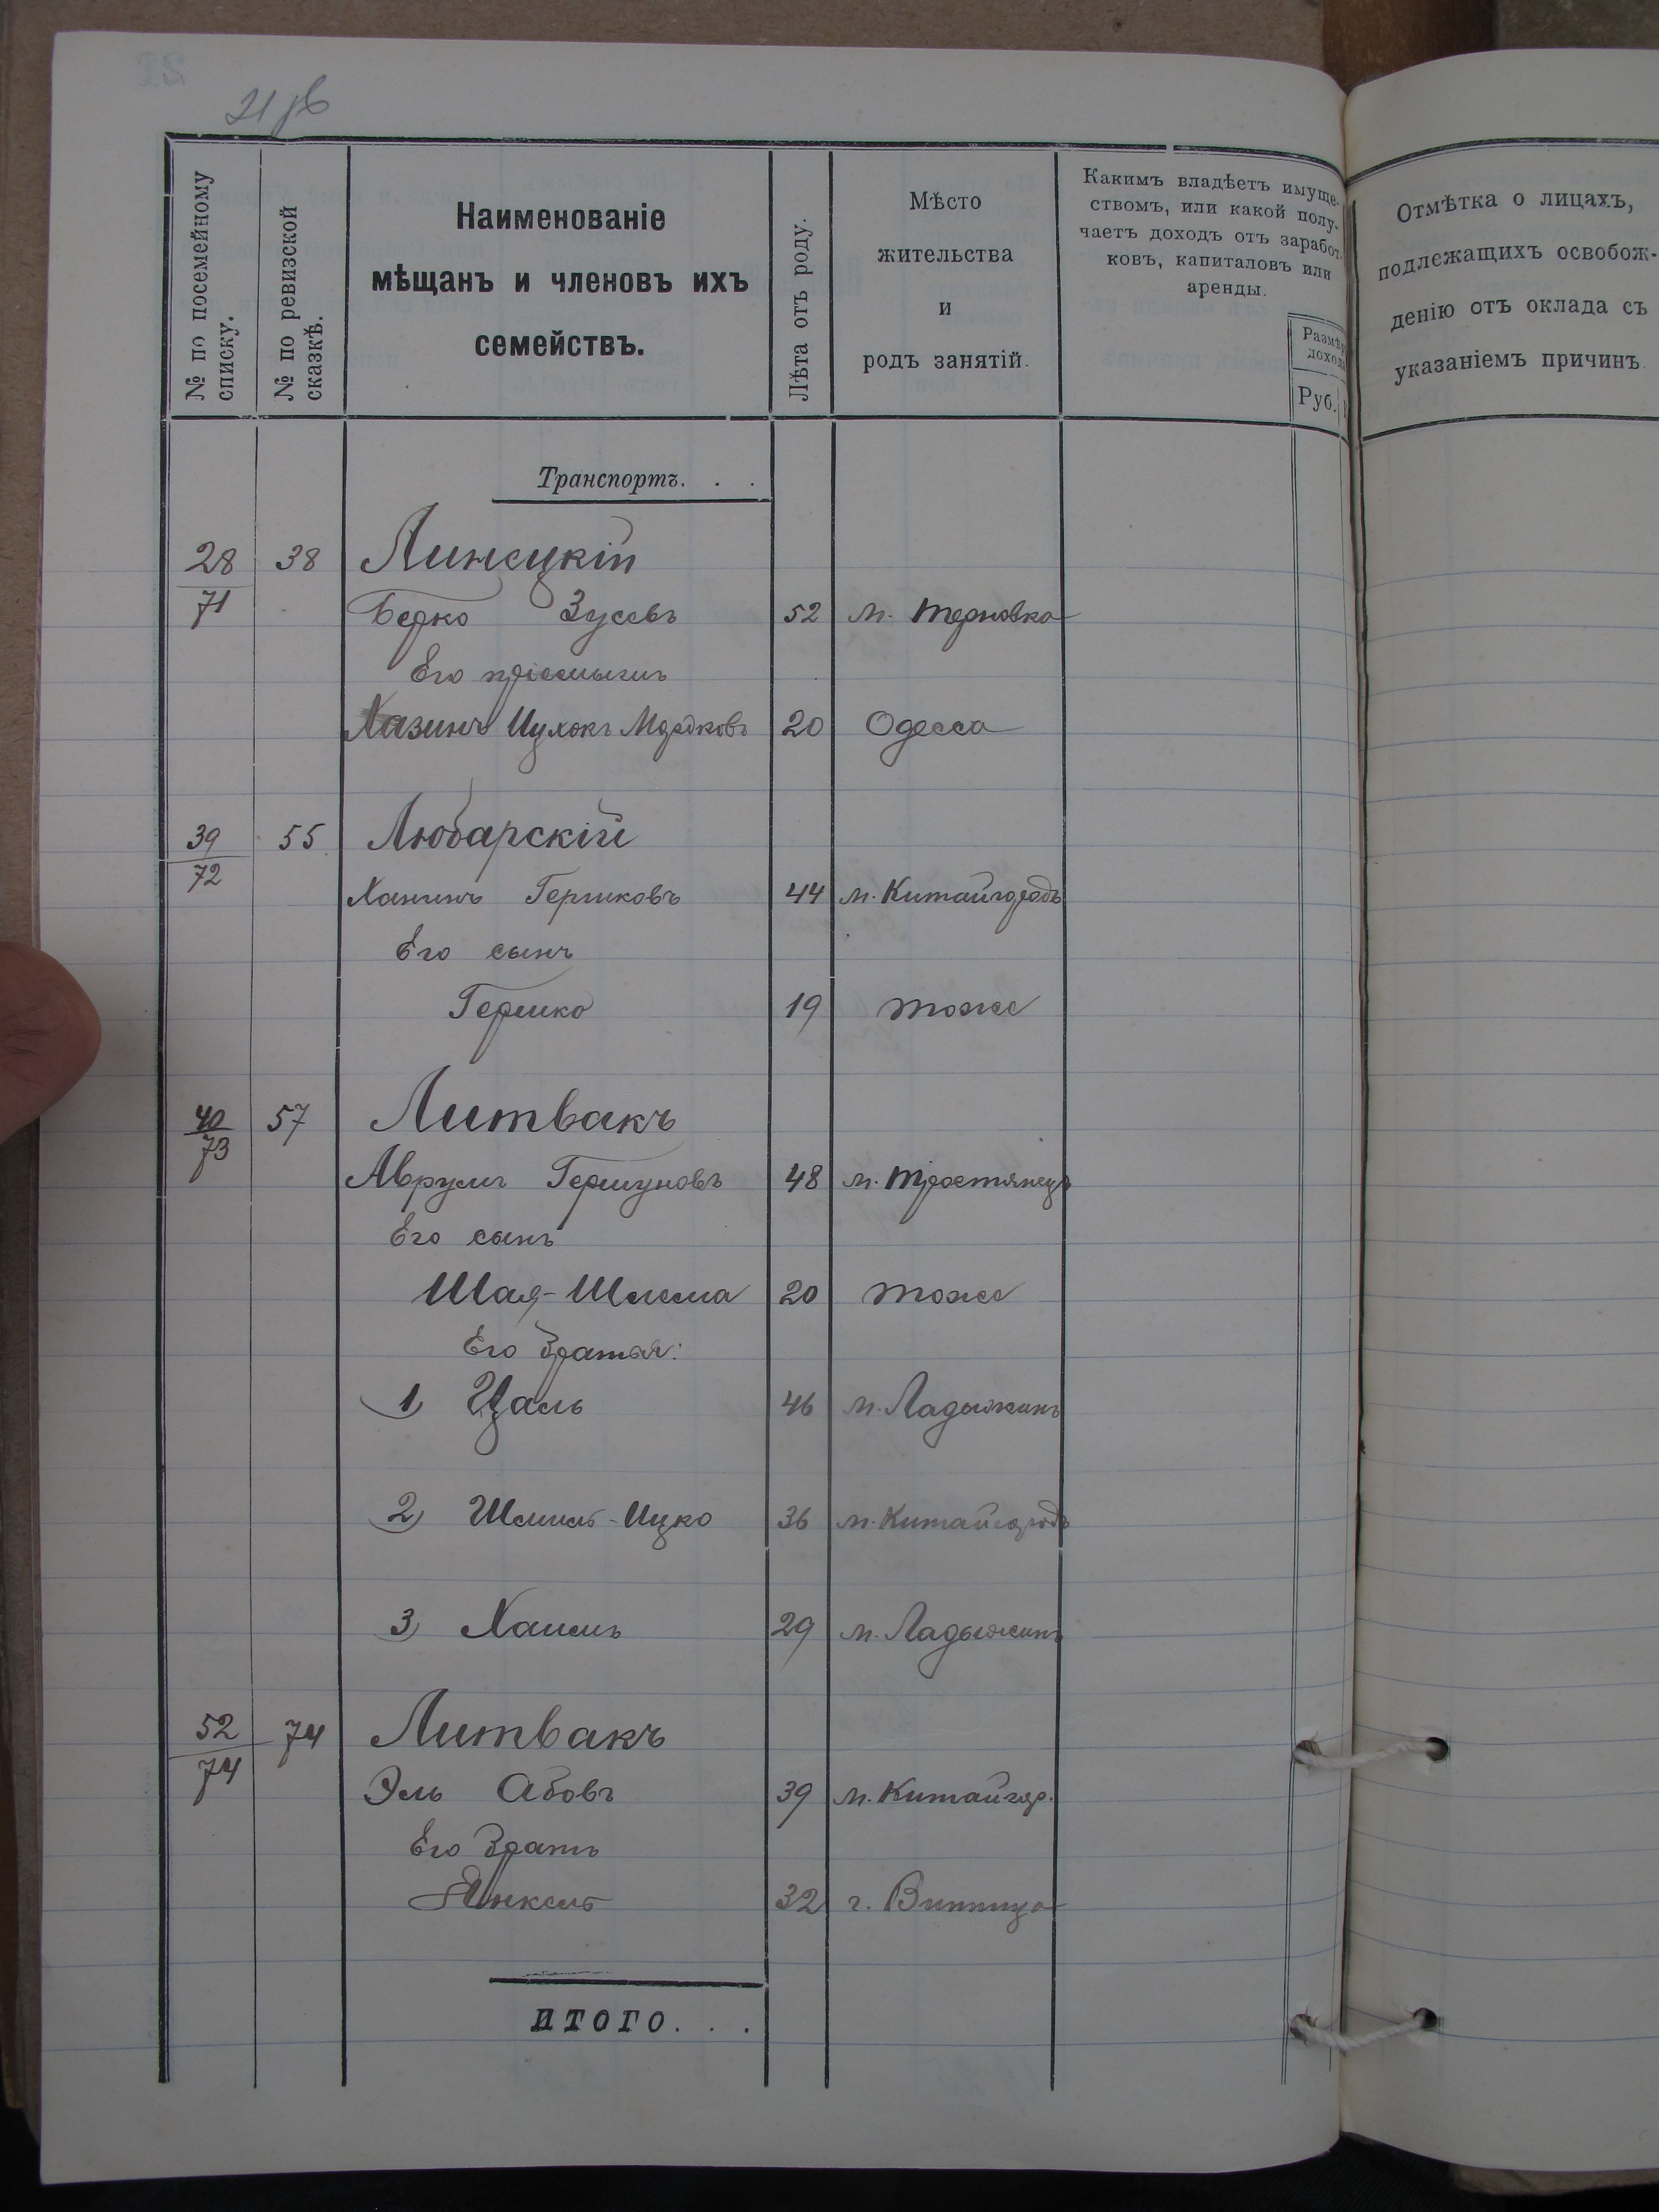 21 об
№ по посемейному списку.
№ по ревизской сказкѣ.
Наименованіе
мѣщанъ и членовъ ихъ
семействъ.
Лѣта отъ роду.
Мѣсто
жительства
и
родъ занятій.
Какимъ владѣетъ имуще-
ствомъ, или какой полу-
чаетъ доходъ отъ заработ-
ковъ, капиталовъ или
аренды.
Размѣръ
дохода
Руб.
Отмѣтка о лицахъ,
подлежащихъ освобож-
денію отъ оклада съ
указаніемъ причинъ.
Транспортъ. . .
28 38 Линецкій
71 Берко Зусевъ 52 м. Терновка
Его пріемышъ
Хазинъ Ицхокъ Мордковъ 20 Одесса
39 55 Любарскій
72
Ханинъ Гершковъ 44 м. Китайгородъ
Его сынъ
Гершко 19 тоже
40 57 Литвакъ
73
Аврумъ Гершуновъ 48 м. Тростянецъ
Его сынъ
Шая-Шлема 20 тоже
Его братья:
1) Цаль 46 м. Ладыжинъ
2) Шмиль-Ицко 36 м. Китайгородъ
3) Хаимъ 29 м. Ладыжинъ
52 74 Литвакъ
74 Эль Абовъ 39 м. Китайгор.
Его братъ
Янкель 32 г. Винница
ИТОГО. . .